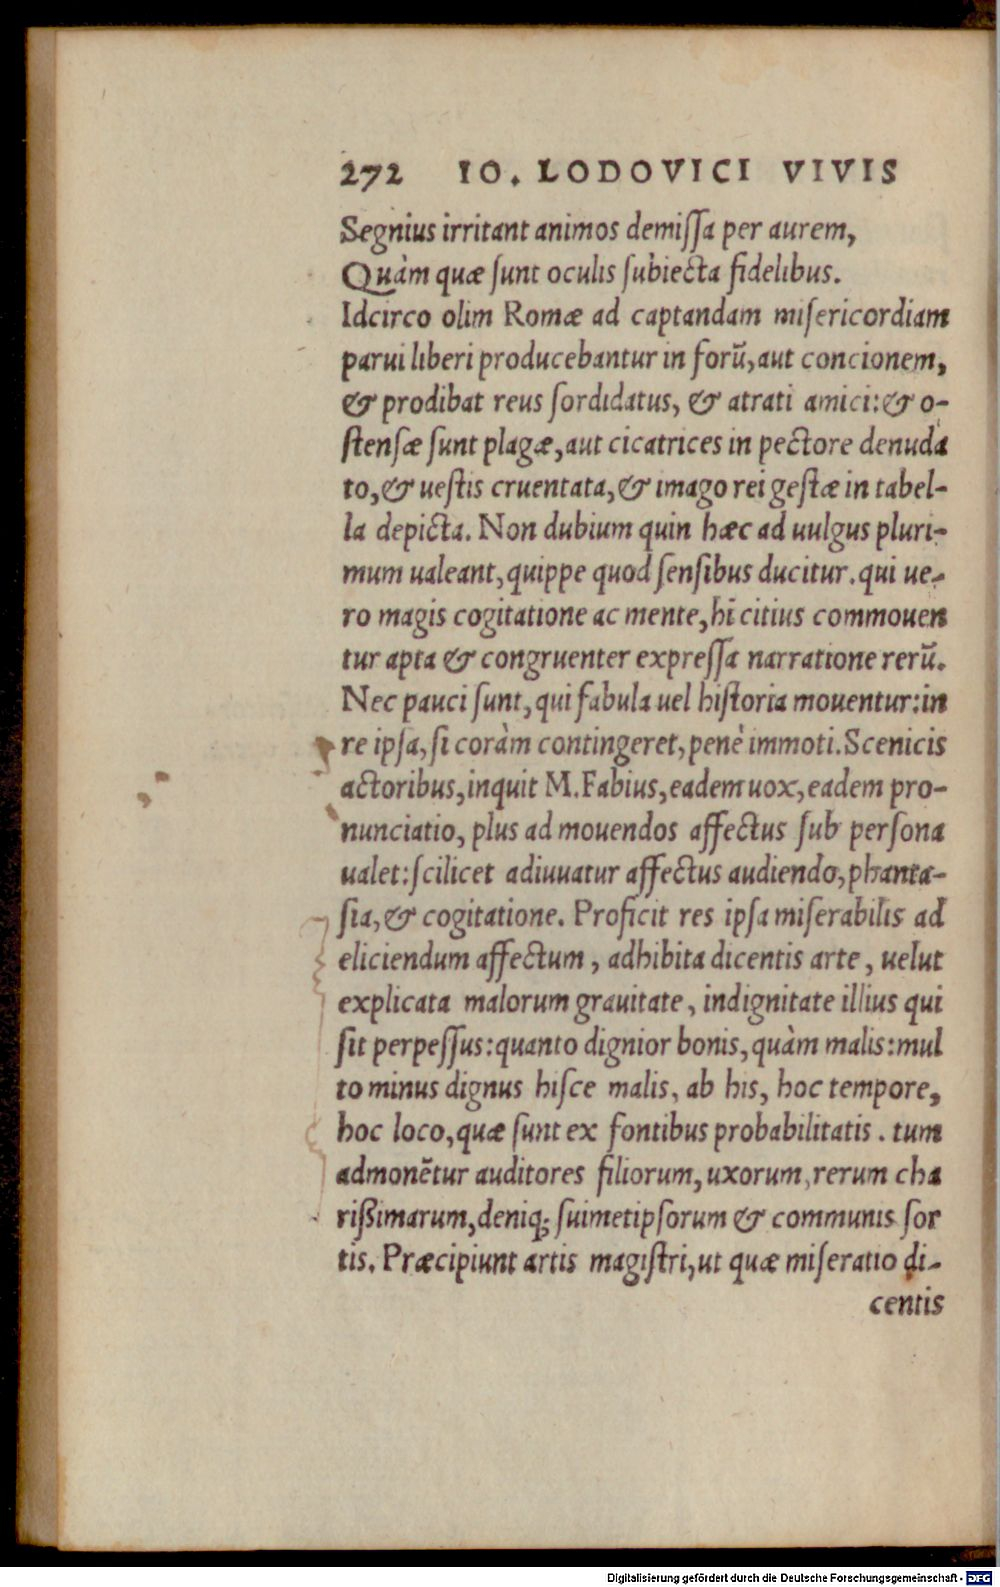 272 IO. LODOVICI VIVIS
Segnius irritant animos demissa per aurem,
Quàm quæ sunt oculis subiecta fidelibus.
Idcirco olim Romæ ad captandam misericordiam
parui liberi producebantur in forū, aut concionem,
& prodibat reus sordidatus, & atrati amici: & o-
stensæ sunt plagæ, aut cicatrices in pectore denuda
to, & uestis cruentata, & imago rei gestæ in tabel-
la depicta. Non dubium quin hæc ad uulgus pluri-
mum ualeant, quippe quod sensibus ducitur. qui ue-
ro magis cogitatione ac mente, hī citius commouen
tur apta & congruenter expressa narratione rerū.
Nec pauci sunt, qui fabula uel historia mouentur: in
re ipsa, si coràm contingeret, penè immoti. Scenicis
actoribus, inquit M. Fabius, eadem uox, eadem pro-
nunciatio, plus ad mouendos affectus sub persona
ualet: scilicet adiuuatur affectus audiendo, phanta-
sia, & cogitatione. Proficit res ipsa miserabilis ad
eliciendum affectum, adhibita dicentis arte, uelut
explicata malorum grauitate, indignitate illius qui
sit perpessus: quanto dignior bonis, quàm malis: mul
to minus dignus hisce malis, ab his, hoc tempore,
hoc loco, quæ sunt ex fontibus probabilitatis. tum
admonētur auditores filiorum, uxorum, rerum cha
rißimarum, deniq; suimetipsorum & communis sor
tis. Præcipiunt artis magistri, ut quæ miseratio di-
centis
Digitalisierung gefördert durch die Deutsche Forschungsgemeinschaft - DFG